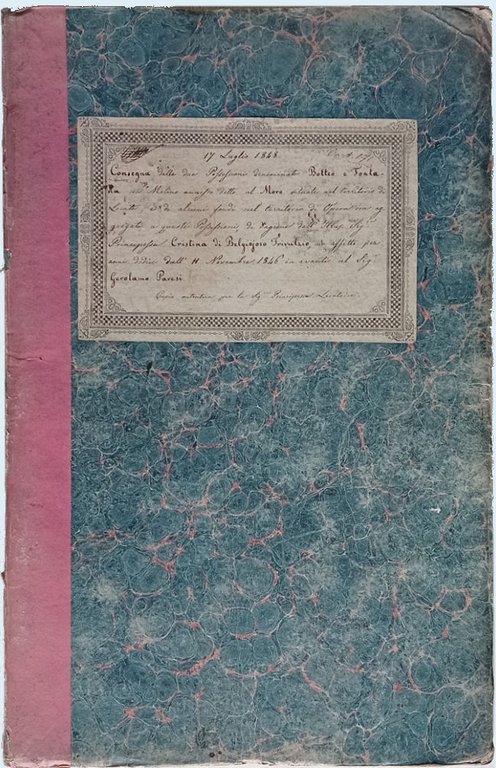 17 Luglio 1848
Consegna delle due Possessioni denominate Bottio e Fonta-
na con Molino annesso detto al Moro situate nel territorio di
ed alcuni fondi nel territorio di
a queste Possessioni di ragione dell' Illma Sigra
Principessa Cristina di Belgiojoso Trivulzio, in affitto per
anni dall' 11 Novembre 1846 in avanti al Sigr
Gerolamo Paresi
Copia autentica per la Sigra Principessa